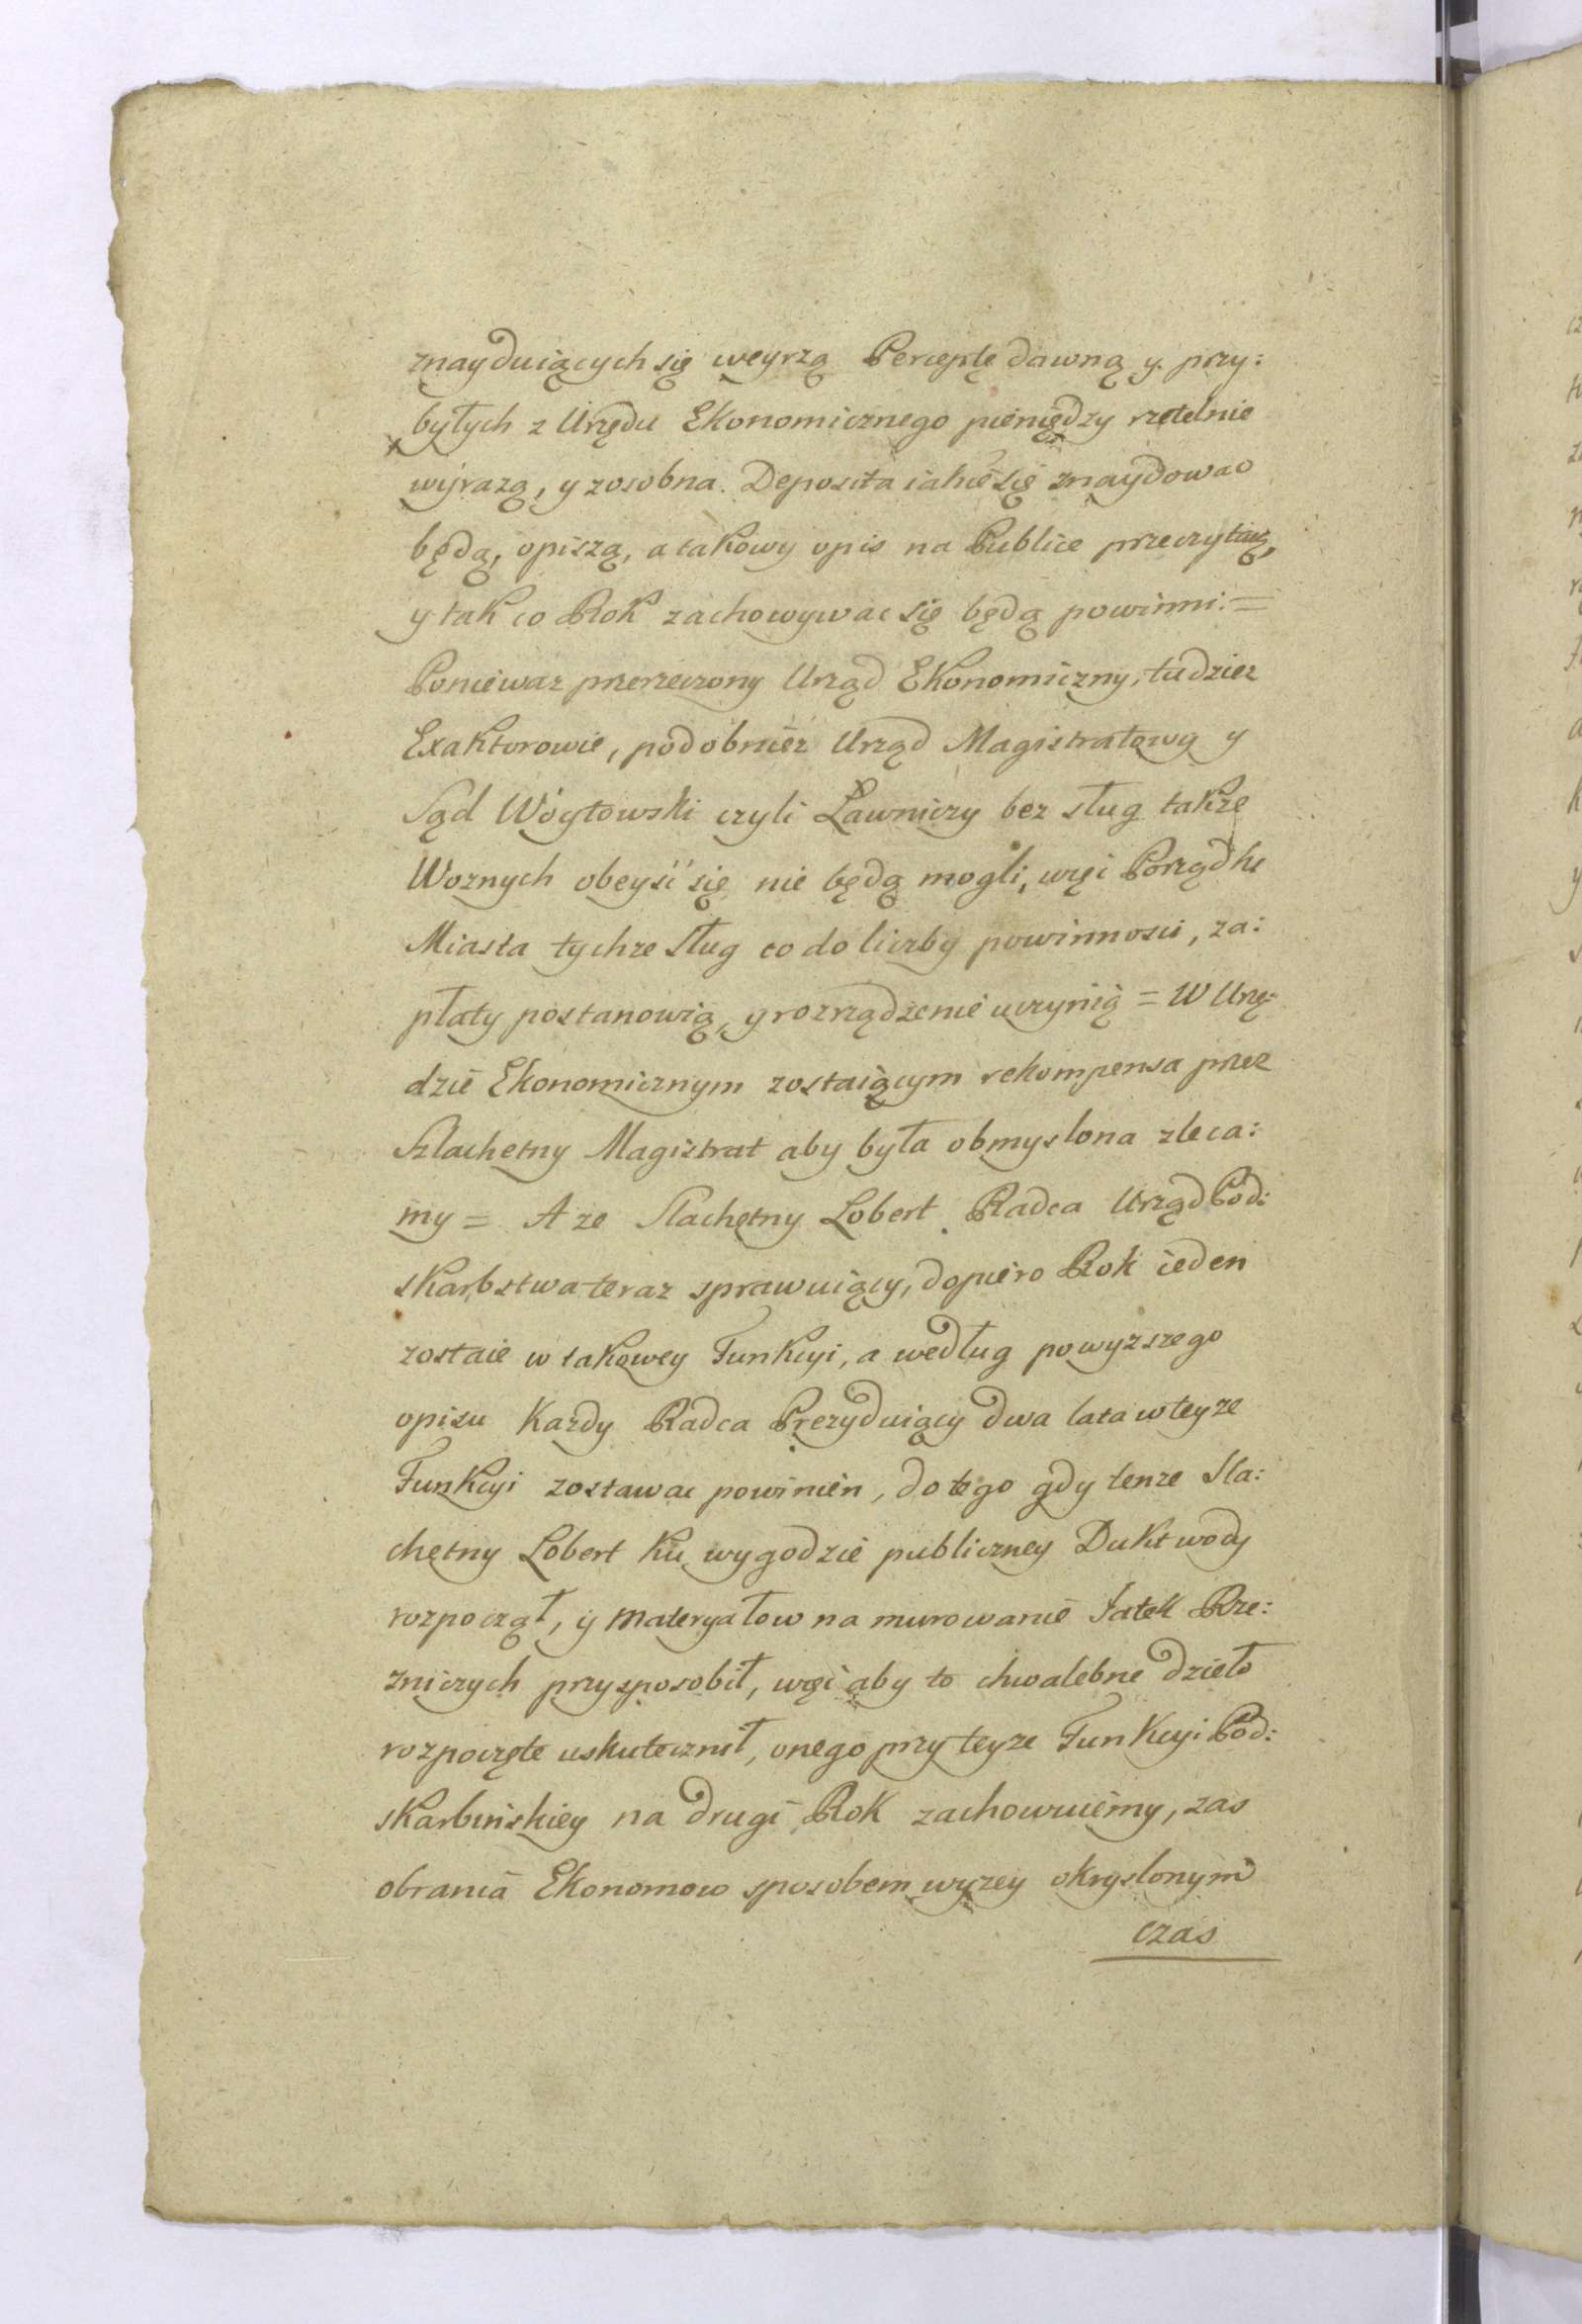 znayduiących się weyrzą Perceptę dawną y przy:
byłych z Urzędu Ekonomicznego pieniędzy rzetelnie
wyrazą, y zosobna. Deposita iakie się znaydowac
będą, opiszą, a takowy opis na Publice przeczytaią,
y tak co Rok zachowywac się będą powinni. =
Poniewaz przerzeczony Urząd Ekonomiczny, tudziez
Exaktorowie, podobniez Urząd Magistratowy y
Sąd Wóytowski czyli Ławniczy bez sług takze
Woznych obeyść się nie będą mogli, więc Porządki
Miasta tychze Sług co do liczby powinnosci, za:
płaty postanowią, y rozrządzenie uczynią = W Urzę:
dzie Ekonomicznym zostaiącym rekompensa przez
Szlachetny Magistrat aby była obmyslona zleca:
my = A ze Slachetny Lobert Radca Urząd Pod:
skarbstwa teraz sprawuiący, dopiero Rok ieden
zostaie w takowey Funkcyi, a według powyzszego
opisu Kazdy Radca Prezyduiący dwa lata w teyze
Funkcyi zostawac powinien, do tego gdy tenze Sla:
chetny Lobert ku wygodzie publiczney Dukt wody
rozpoczął, y materyałow na murowanie Jatek Rze:
zniczych przysposobił, więc aby to chwalebne dzieło
rozpoczęte uskutecznił, onego przy teyze Funkcyi Pod:
skarbinskiey na drugi Rok zachowuiemy, zas
obrania Ekonomow sposobem wyzey okryslonym
czas